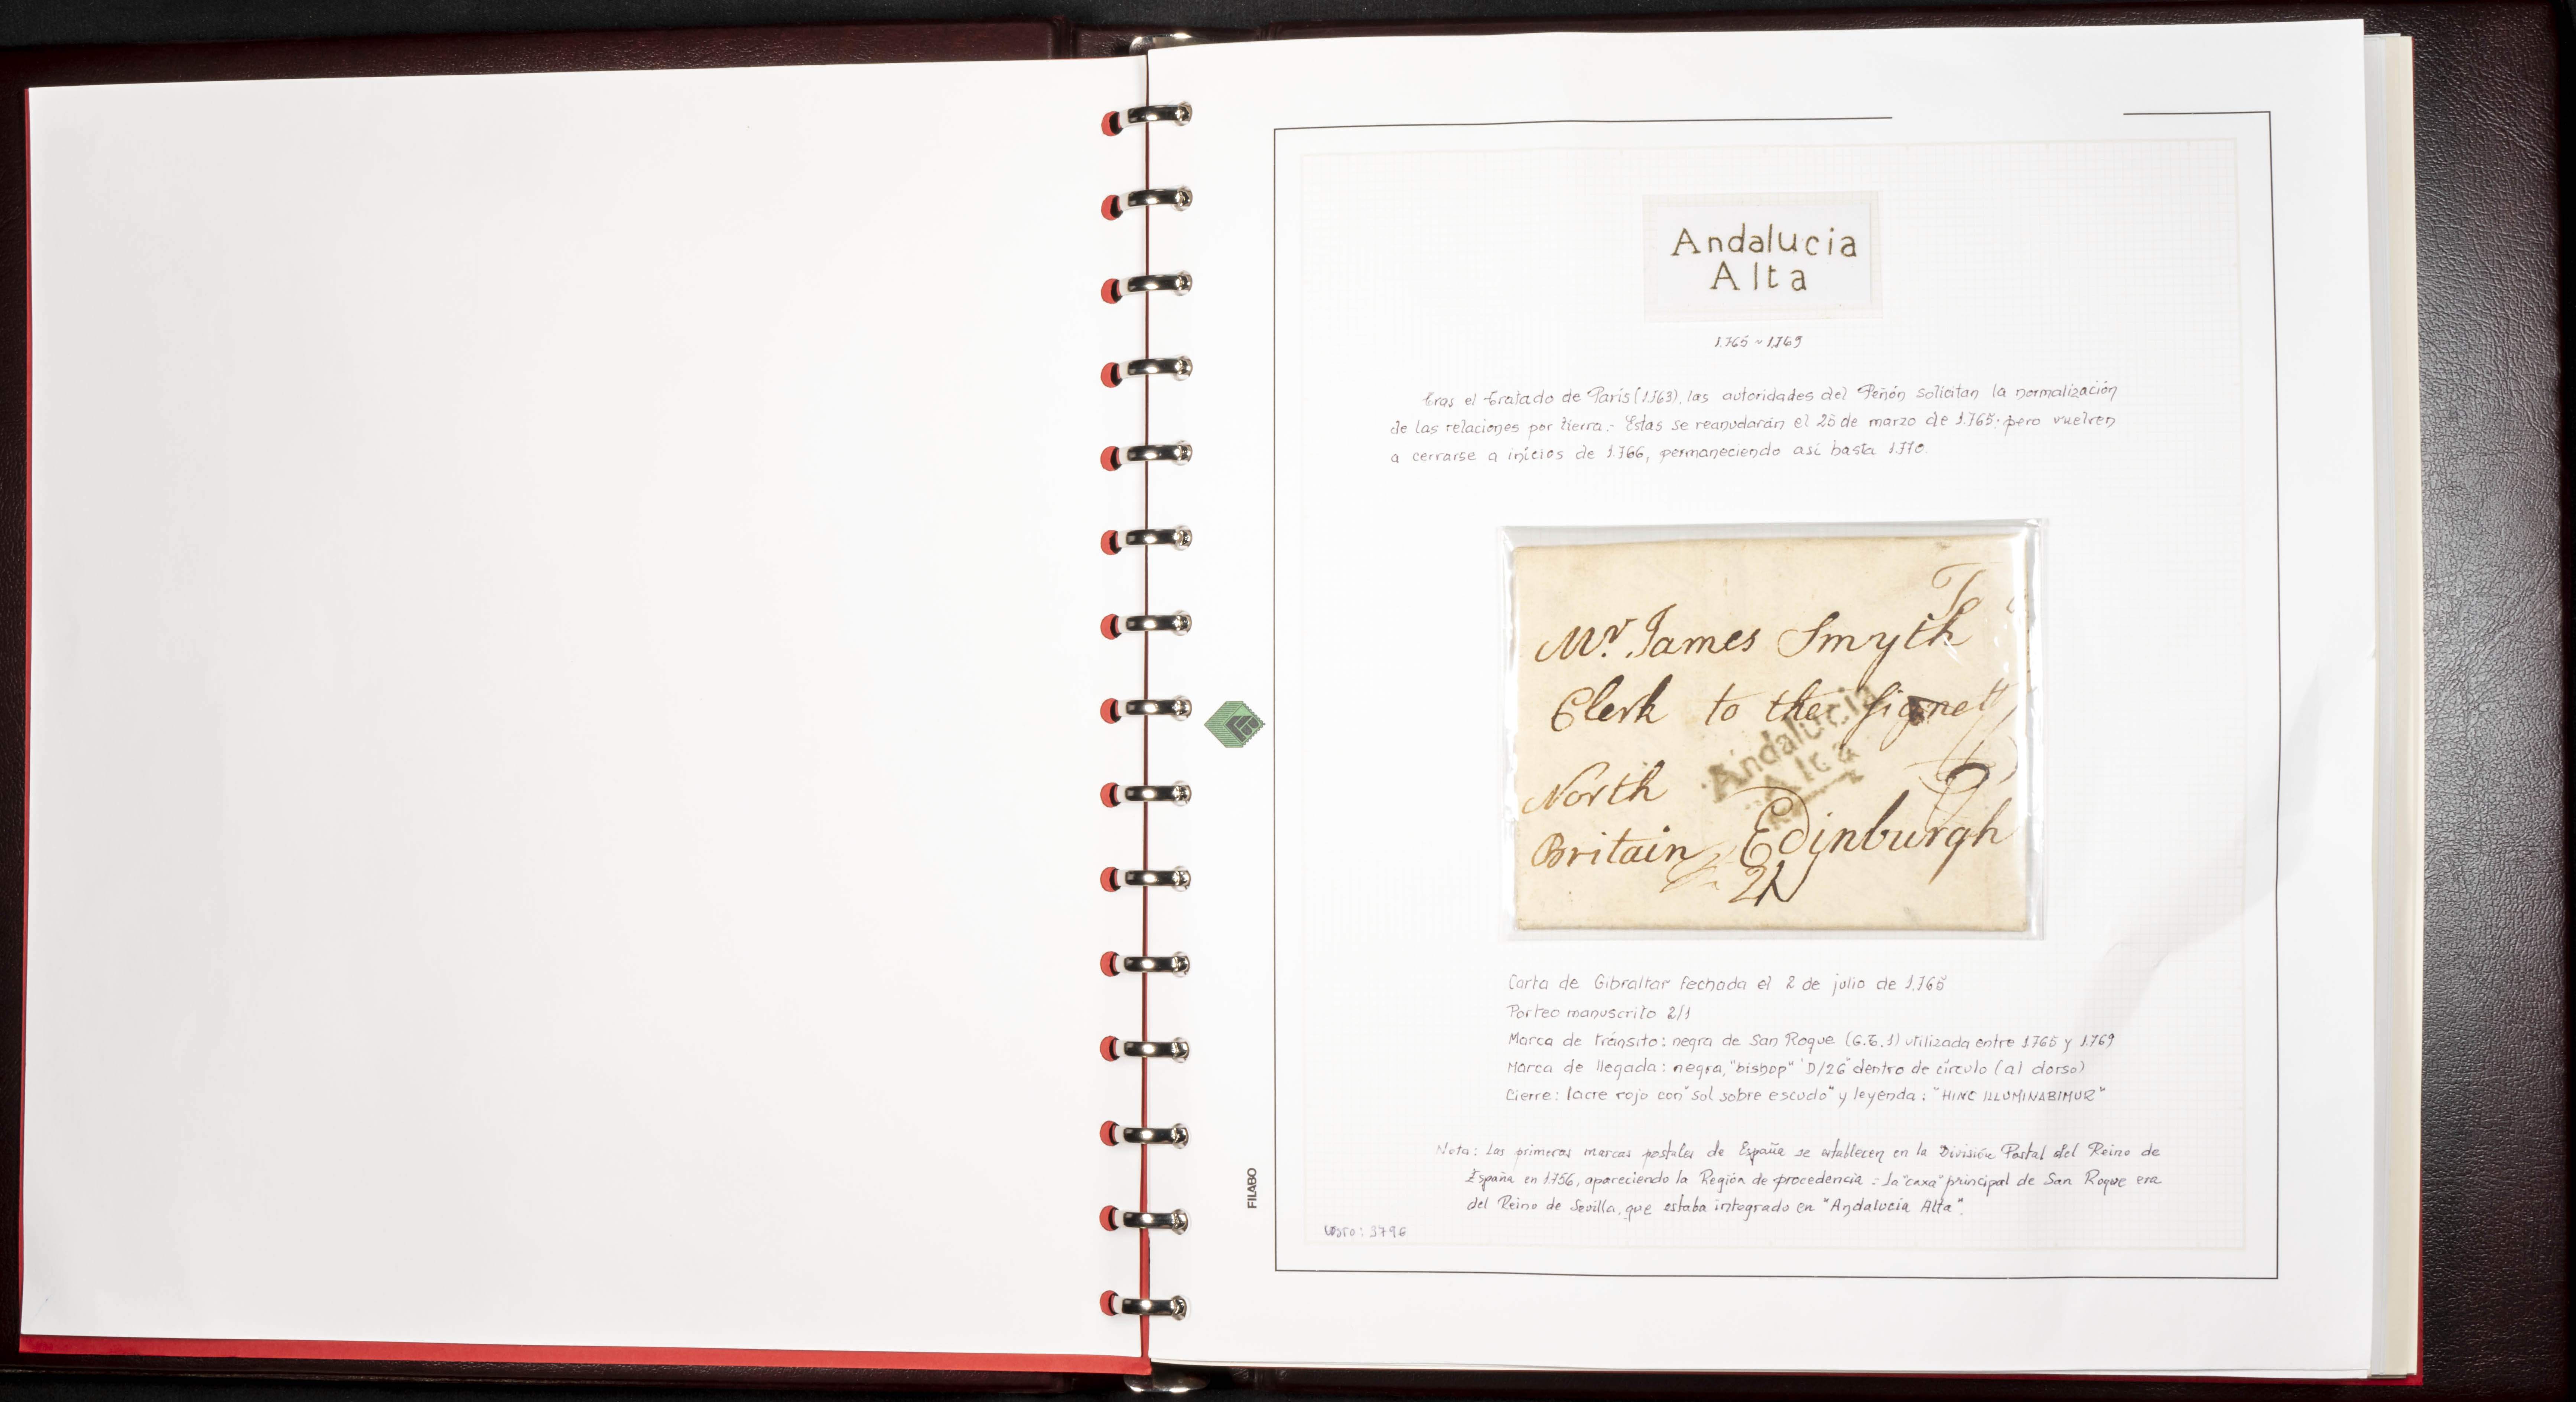 Andalucia
Alta
1.765 ~ 1.769
Tras el Tratado de París (1.763), las autoridades del Peñón solicitan la normalización
de las relaciones por tierra.- Estas se reanudarán el 25 de marzo de 1.765; pero vuelven
a cerrarse a inicios de 1.766, permaneciendo así hasta 1.770.
To
Mr. James Smyth
Clerk to the Signet
Andalucia
Alta
North
Britain Edinburgh
2/1
Carta de Gibraltar fechada el 2 de julio de 1.765
Porteo manuscrito 2/1
Marca de tránsito: negra de San Roque (G.T.1) utilizada entre 1.765 y 1.769
Marca de llegada: negra, "bishop" "D/26" dentro de círculo (al dorso)
Cierre: lacre rojo con "sol sobre escudo" y leyenda: "HINC ILLUMINABIMUR"
Nota: Las primeras marcas postales de España se establecen en la División Postal del Reino de
España en 1.756, apareciendo la Región de procedencia: la "caxa" principal de San Roque era
del Reino de Sevilla, que estaba integrado en "Andalucía Alta".
3796
FILABO